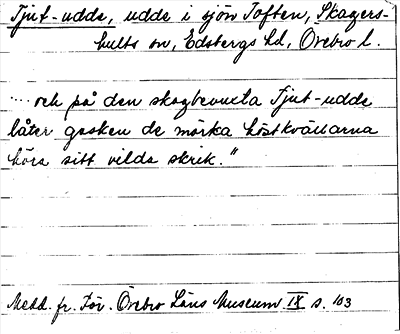 Tjut-udde, udde i sjön Toften, Skagers-
hults sn, Edsbergs hd, Örebro l.
.... och på den skogbevuxta Tjut-udde
låter gasten de mörka höstkvällarna
höra sitt vilda skrik."
Medd. fr. För. Örebro Läns Museum IX s. 103